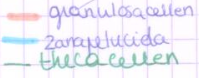 granulosacellen
zonapelucida
thecacellen